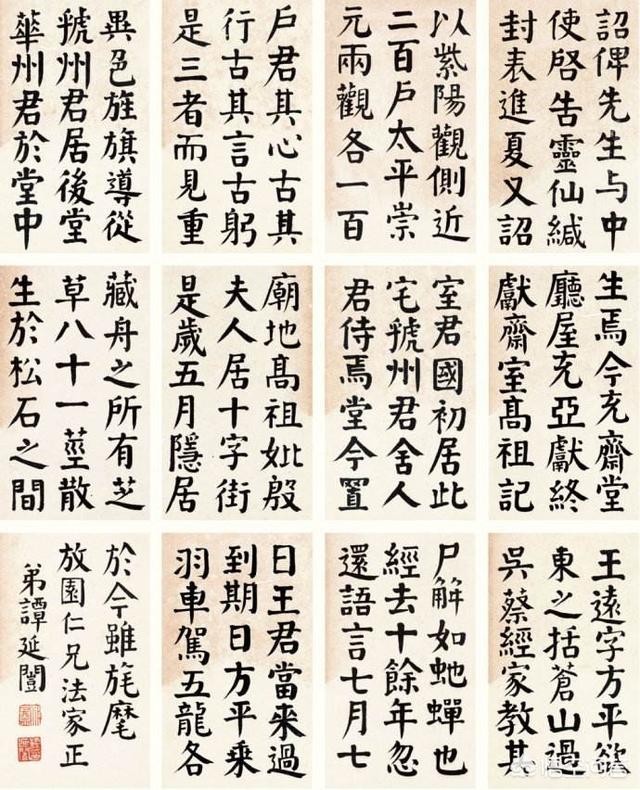 詔俾先生与中
使啓告靈仙緘
封表進夏又詔
以紫陽觀側近
二百戶太平崇
元兩觀各一百
戶君其心古其
行古其言古躬
是三者而見重
異色旌旗導從
虢州君居後堂
華州君於堂中
生焉今充齋堂
廳屋充亞獻終
獻齋室髙祖記
室君國初居此
宅虢州君舍人
君侍焉堂今置
廟地髙祖妣殷
夫人居十字街
是歲五月隱居
藏舟之所有芝
草八十一莖散
生於松石之間
王遠字方平欲
東之括蒼山過
吳蔡經家教其
尸解如虵蟬也
經去十餘年忽
還語言七月七
日王君當來過
到期日方平乘
羽車駕五龍各
於今雖旄麾
放園仁兄法家正
弟譚延闓